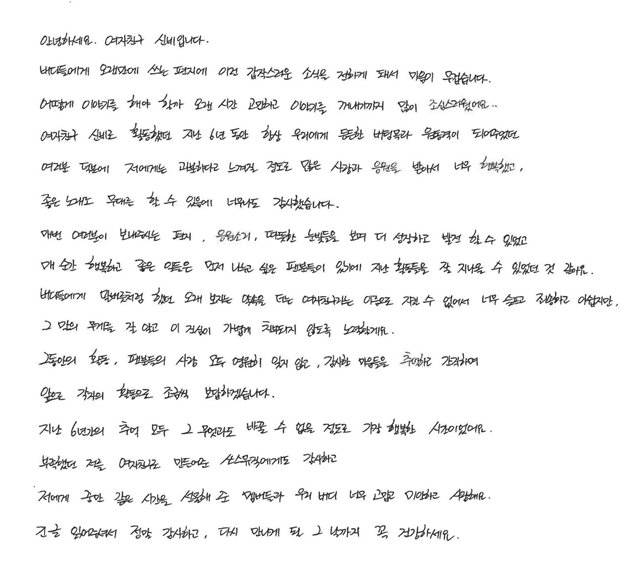 안녕하세요. 여자친구 신비입니다.
버디들에게 오랜만에 쓰는 편지에 이런 갑작스러운 소식을 전하게 돼서 마음이 무겁습니다.
어떻게 이야기를 해야 할까 오랜 시간 고민하고 이야기를 꺼내기까지 많이 조심스러웠어요..
여자친구 신비로 활동했던 지난 6년 동안 항상 우리에게 든든한 버팀목과 원동력이 되어주었던
여러분 덕분에 저에게는 과분하다고 느껴질 정도로 많은 사랑과 응원을 받아서 너무 행복했고,
좋은 노래로 무대를 할 수 있음에 너무나도 감사했습니다.
매번 여러분이 보내주시는 편지, 응원소리, 따뜻한 눈빛들을 보며 더 성장하고 발전 할 수 있었고
매 순간 행복하고 좋은 일들은 먼저 나누고 싶은 팬분들이 있기에 지난 활동들을 잘 지나올 수 있었던 것 같아요.
버디들에게 말버릇처럼 했던 오래 보자는 약속을 더는 여자친구라는 이름으로 지킬 수 없어서 너무 슬프고 죄송하고 아쉽지만,
그 말의 무게를 잘 알고 이 진심이 가볍게 치부되지 않도록 노력할게요.
그동안의 활동, 팬분들의 사랑 모두 영원히 잊지 않고, 감사한 마음들을 추억하고 간직하며
앞으로 각자의 활동으로 조금씩 보답하겠습니다.
지난 6년간의 추억 모두 그 무엇과도 바꿀 수 없을 정도로 가장 행복한 시간이었어요.
부족했던 저를 여자친구로 만들어준 쏘스뮤직에게도 감사하고
저에게 꿈만 같은 시간을 선물해 준 멤버들과 우리 버디 너무 고맙고 미안하고 사랑해요.
긴 글 읽어주셔서 정말 감사하고, 다시 만나게 될 그 날까지 꼭 건강하세요.